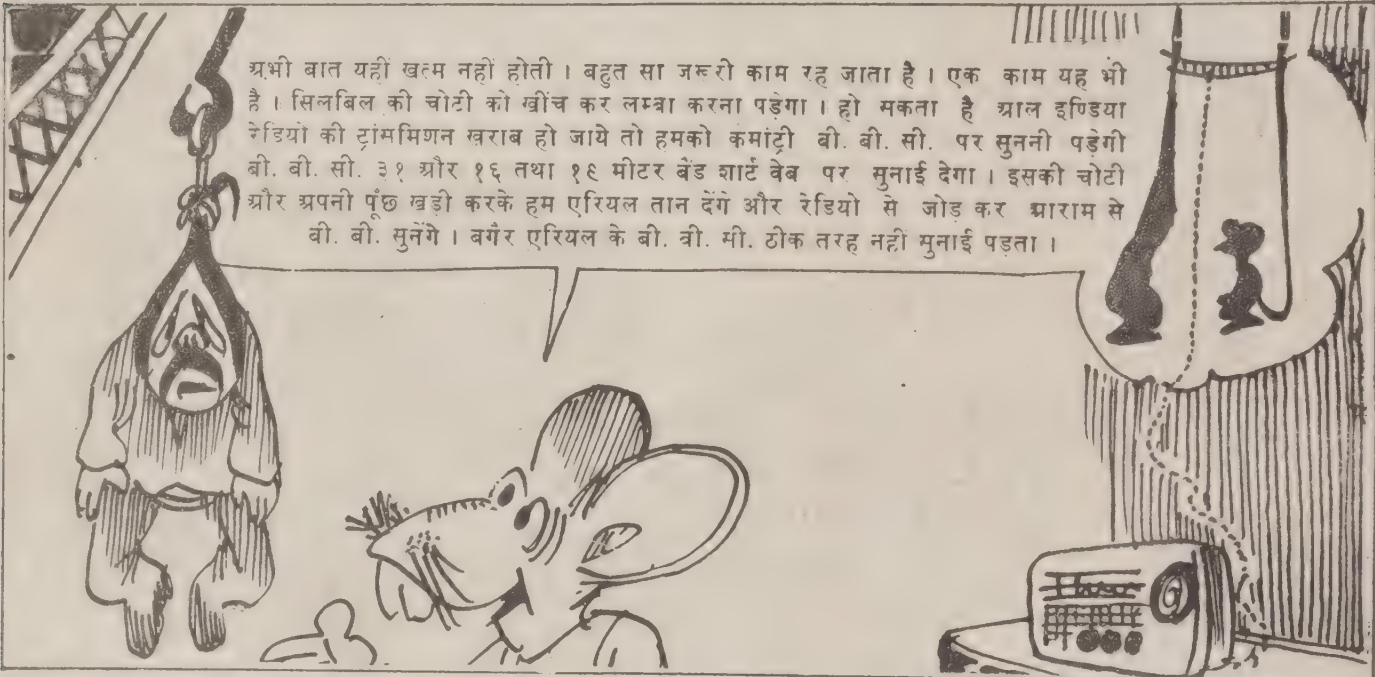 अभी बात यहीं खत्म नहीं होती । बहुत सा जरूरी काम रह जाता है । एक काम यह भी
है । सिलबिल की चोटी को खींच कर लम्बा करना पड़ेगा । हो सकता है आल इण्डिया
रेडियो की ट्रांसमिशन खराब हो जाये तो हमको कमांट्री बी. बी. सी. पर सुननी पड़ेगी
बी. बी. सी. ३१ और १६ तथा १९ मीटर बैंड शार्ट वेब पर सुनाई देगा । इसकी चोटी
और अपनी पूंछ खड़ी करके हम एरियल तान देंगे और रेडियो से जोड़ कर आराम से
बी. बी. सुनेंगे । बगैर एरियल के बी. बी. सी. ठीक तरह नहीं सुनाई पड़ता ।